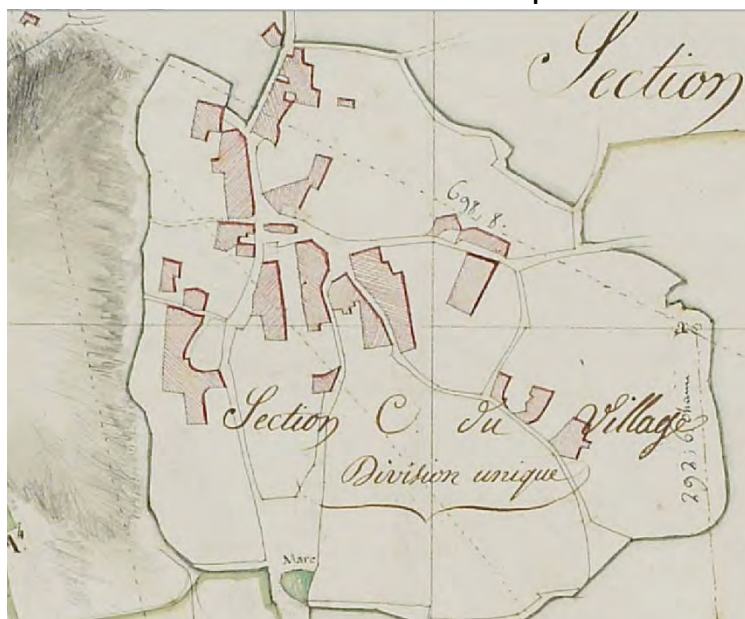 Section
698,8.
Section C. du Village
Division unique
292,6
Mare